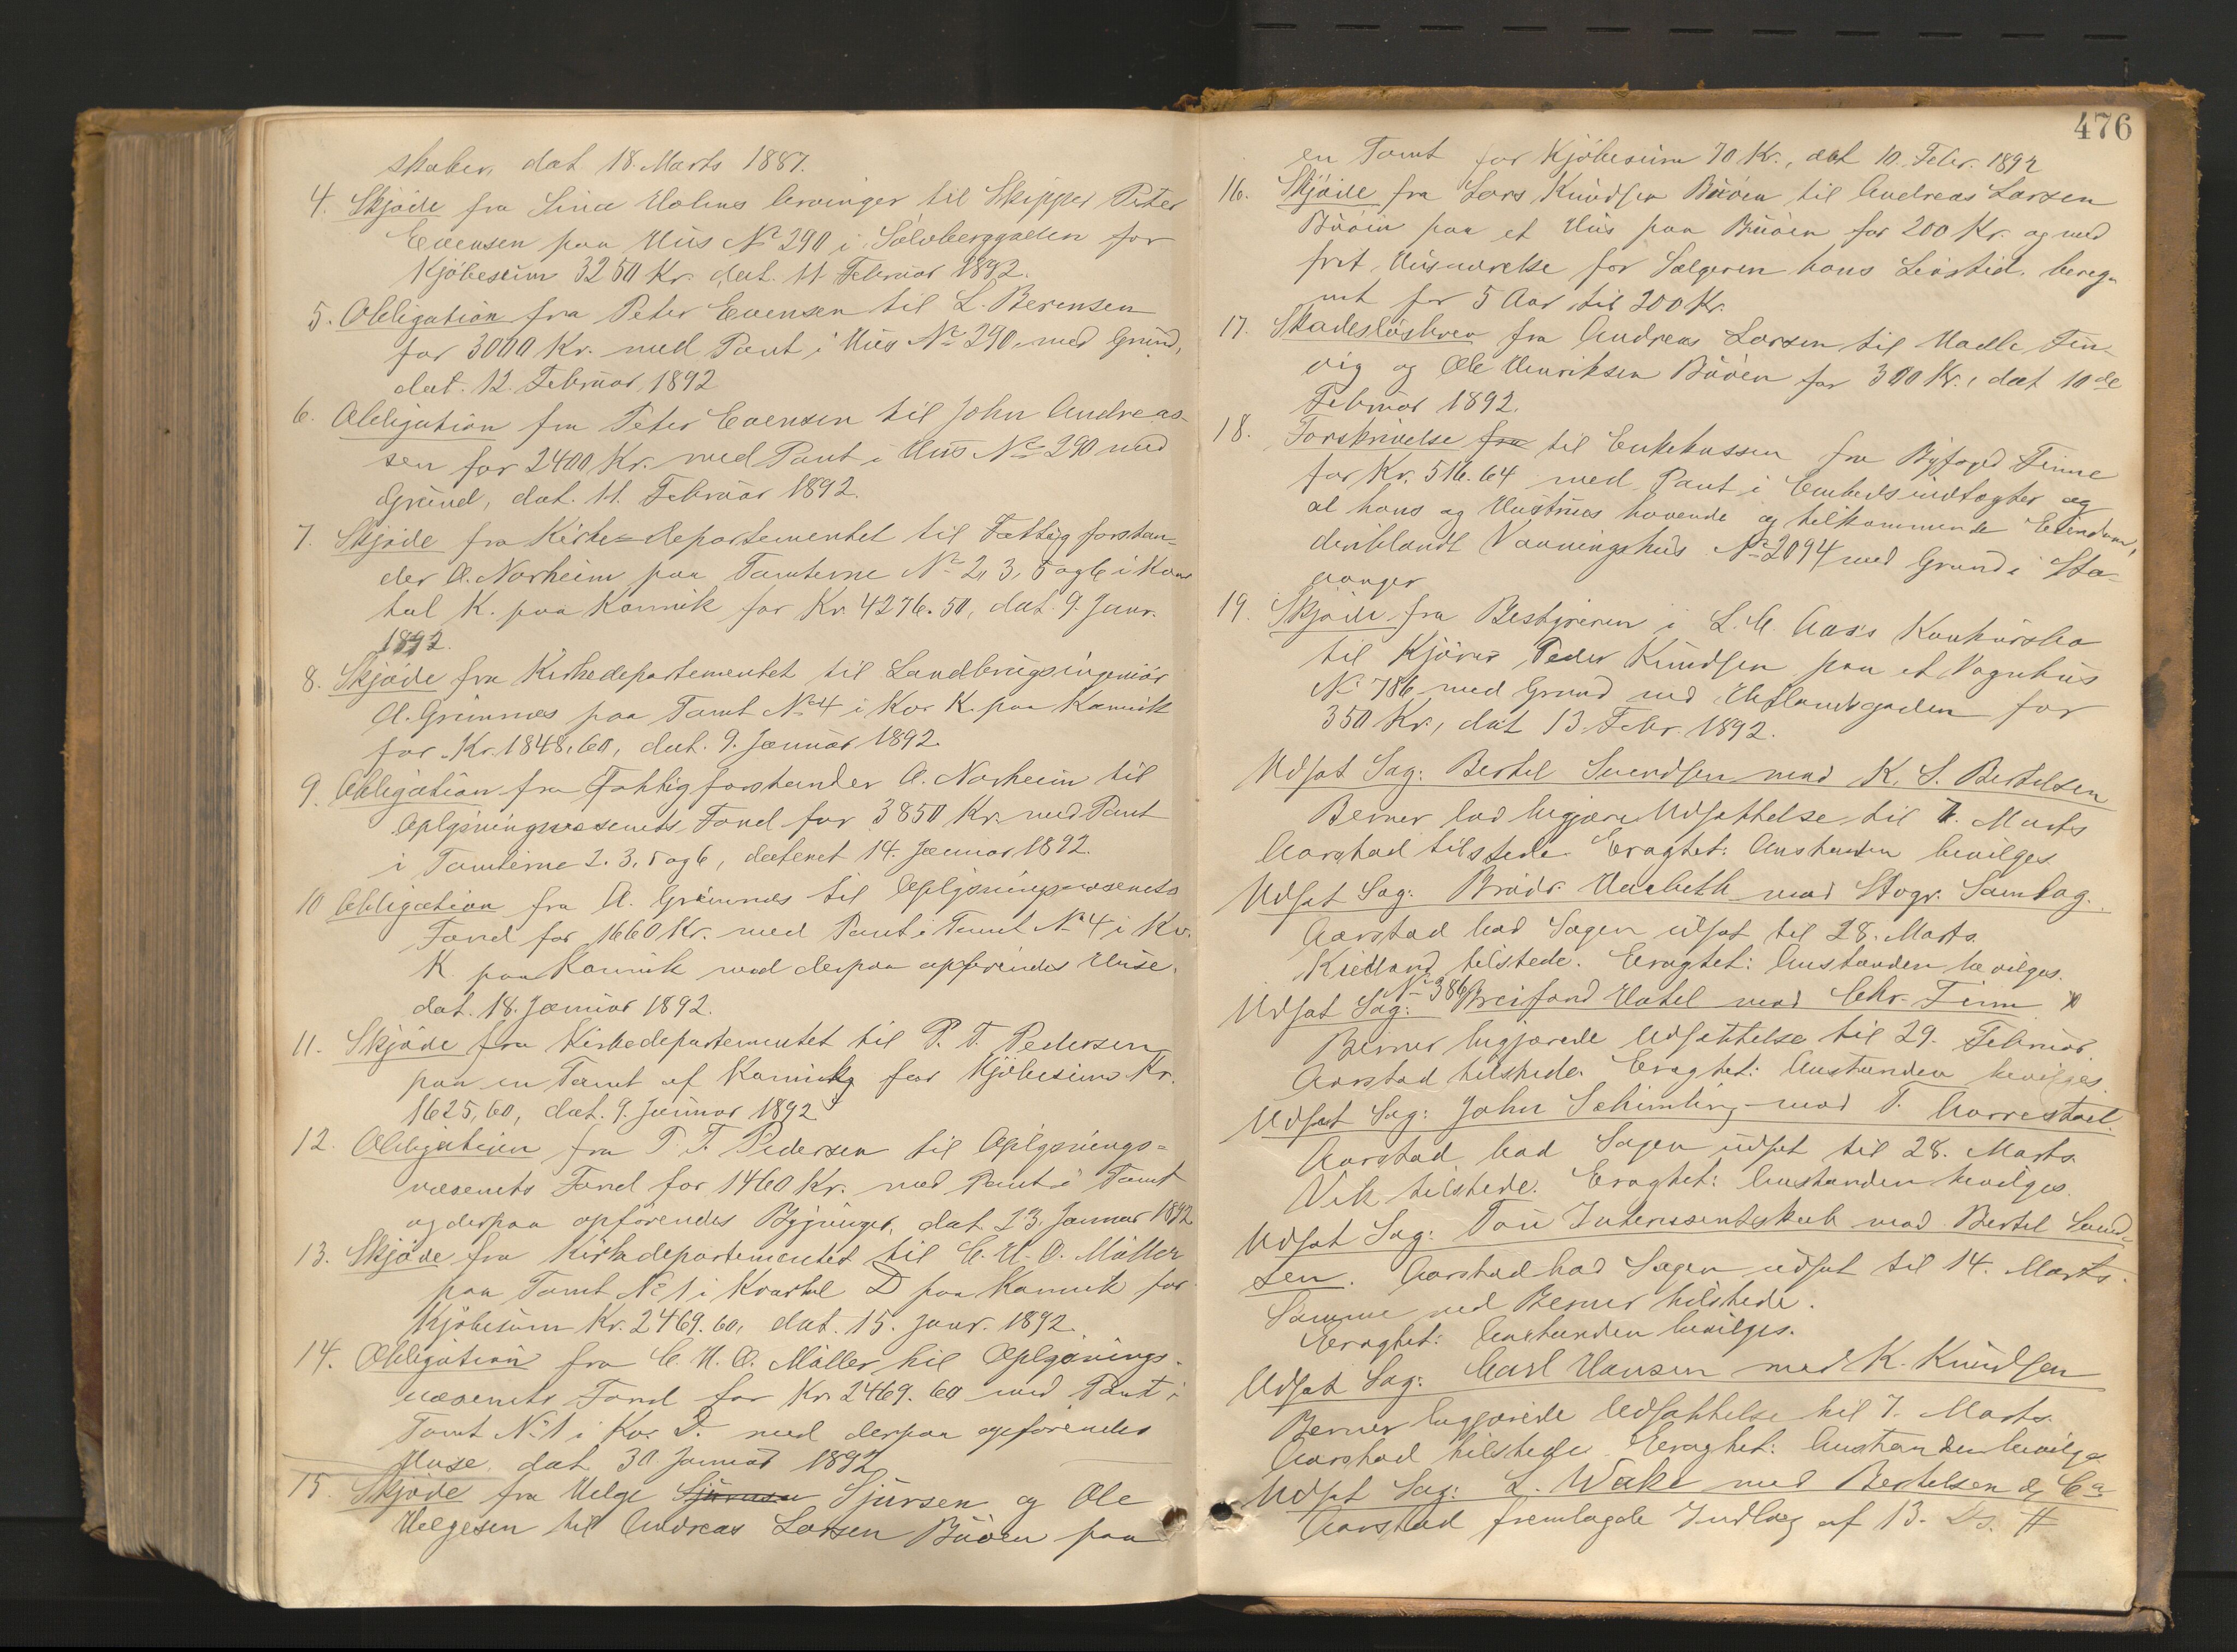 skaber, dat 18. Marts 1887.
4. Skjöde fra Sina Holms Arvinger til Skipper Peter
Evensen paa Hus No 290 i Sølvberggaden for
Kjöbesum 3250 Kr. dat. 11 Februar 1892.
5. Obligation fra Peter Evensen til L. Berensen
for 3000 Kr. med Pant i Hus No 290, med Grund,
dat. 12. Februar 1892
6. Obligation fra Peter Evensen til John Andreas-
sen for 2400 Kr. med Pant i Hus No 290 med
Grund, dat. 11. Februar 1892.
7. Skjöde fra Kirke-departementet til Fattigforstan-
der A. Norheim paa Tomterne No 2, 3, 5 og 6 i Kvar
tal K. paa Kannik for Kr. 4276.50, dat. 9. Janr.
1892.
8. Skjöde fra Kirkedepartementet til Landbrugsingeniör
A. Grimnes paa Tomt No 4 i Kv. K. paa Kannik
for Kr. 1848,60, dat. 9. Januar 1892.
9. Obligation fra Fattigforstander A. Norheim til
Oplysningsvæsenets Fond for 3850 Kr. med Pant
i Tomterne 2. 3. 5 og 6, dateret 14. Januar 1892.
10 Obligation fra A. Grimnes til Oplysningsvæsenets
Fond for 1660 Kr. med Pant i Tomt No 4 i Kv.
K paa Kannik med derpaa opförendes Huse.
dat. 18. Januar 1892.
11. Skjöde fra Kirkedepartementet til P. T. Pedersen
paa en Tomt af Kannik for Kjöbesum Kr.
1625,60, dat. 9. Januar 1892
12. Obligation fra P. T. Pedersen til Oplysnings-
væsenets Fond for 1460 Kr. med Pant i Tomt
og derpaa opförendes Bygninger, dat. 23. Januar 1892
13. Skjöde fra Kirkedepartementet til C. H. O. Möller
paa Tomt No 1 i Kvartal D paa Kannik for
Kjöbesum Kr. 2469.60, dat. 15. Janr. 1892.
14. Obligation fra C. H. O. Möller til Oplysnings-
væsenets Fond for Kr. 2469.60 med Pant i
Tomt No 1 i Kv. D. med derpaa opförendes
Huse. dat. 30 Januar 1892
15. Skjöde fra Helge Sjursen og Ole
Helgesen til Andreas Larsen Buöen paa
476
en Tomt for Kjöbesum 70 Kr., dat 10. Febr. 1892
16. Skjöde fra Lars Knudsen Buöen til Andreas Larsen
Buöen paa et Hus paa Buöen for 200 Kr. og med
frit Husværelse for Sælgeren hans Livstid, bereg-
net for 5 Aar til 200 Kr.
17. Skadeslösbrev fra Andreas Larsen til Hadle Tin-
vig og Ole Henriksen Buöen for 300 Kr., dat 10de
Februar 1892.
18. Forskrivelse fra til Enkekassen fra Byfoged Finne
for Kr. 516.64 med Pant i Embedsindtægter og
al hans og Hustrues havende og tilkommende Eiendom,
deriblandt Vaaningshus No 2094 med Grund i Sta-
vanger
19. Skjöde fra Bestyreren i L. C. Aas's Konkursbo
til Kjörer Peder Knudsen paa et Vognhus
No 786 med Grund ved gaden for
350 Kr., dat 13. Febr. 1892.
Udsat Sag: Bertel Svendsen mod K. S. Bertelsen
Berner lod begjære Udsættelse til 7. Marts
Aarstad tilstede. Eragtet: Anstanden bevilges.
Udsat Sag: Brödr. Haabeth mod Stogr. Samlag.
Aarstad bad Sagen udsat til 28. Marts.
Kielland tilstede. Eragtet: Anstanden bevilges.
Udsat Sag: No 386 Breifond Hotel mod Chr. Finn
Berner begjærede Udsættelse til 29. Februar.
Aarstad tilstede. Eragtet: Anstanden bevilges.
Udsat Sag: John Schimling mod T. Aarrestad.
Aarstad bad Sagen udsat til 28. Marts.
Vik tilstede. Eragtet: Anstanden bevilges.
Udsat Sag: Tou Interessentskab mod Bertel Svend-
sen. Aarstad bad Sagen udsat til 14. Marts.
Samme ved Berner tilstede.
Eragtet: Anstanden bevilges.
Udsat Sag: Carl Hansen mod K. Knudsen
Berner begjærede Udsættelse til 7. Marts.
Aarstad tilstede. Eragtet: Anstanden bevilges
Udsat Sag: L. Wake mod Bertelsen & Co
Aarstad fremlagde Indlæg af 13. Ds. #